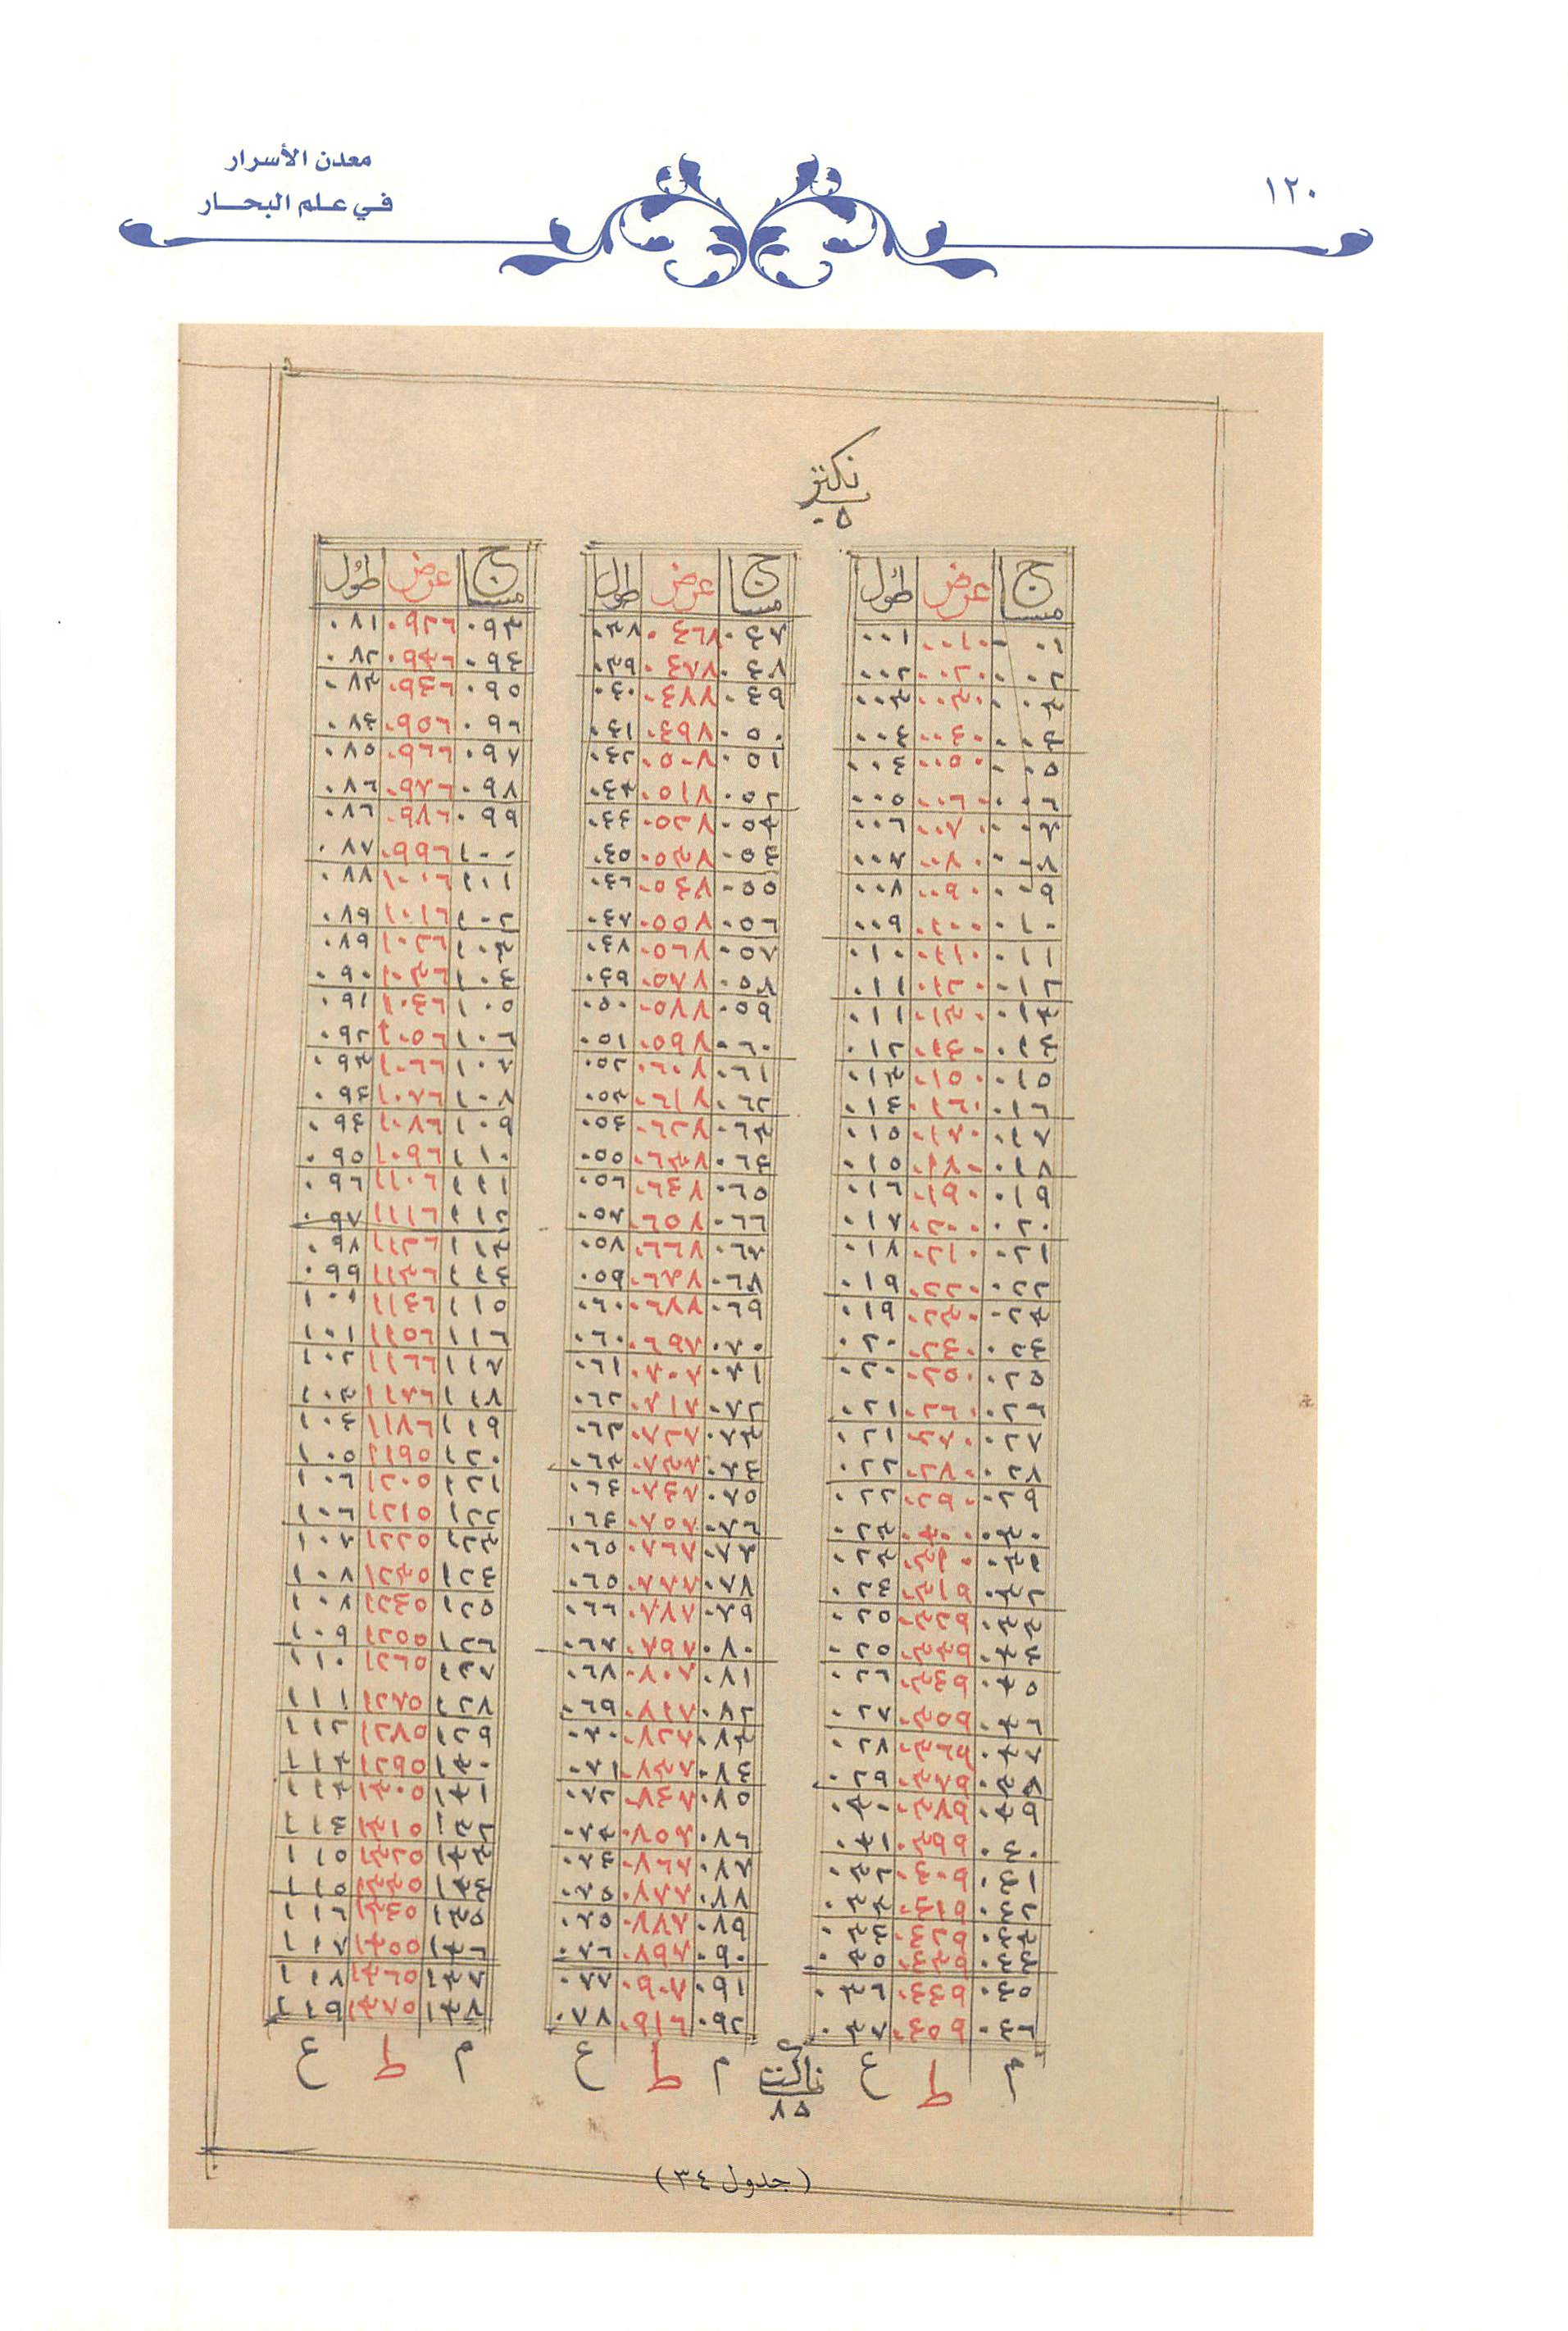 ١٢٠
معدن الأسرار
في علم البحار
نكتر
٠٥
مساج عرض طول
٠١ ٠٠١٠ ٠٠١
٠٠٢ ٠٠٢٠ ٠٠٢
٠٠٣ ٠٠٣٠ ٠٠٣
٠٠٤ ٠٠٤٠ ٠٠٤
٠٠٥ ٠٠٥٠ ٠٠٤
٠٠٦ ٠٠٦٠ ٠٠٥
٠٠٧ ٠٠٧٠ ٠٠٦
٠٠٨ ٠٠٨٠ ٠٠٧
٠٠٩ ٠٠٩٠ ٠٠٨
٠١٠ ٠١٠٠ ٠٠٩
٠١١ ٠١١٠ ٠١٠
٠١٢ ٠١٢٠ ٠١١
٠١٣ ٠١٣٠ ٠١١
٠١٤ ٠١٤٠ ٠١٢
٠١٥ ٠١٥٠ ٠١٣
٠١٦ ٠١٦٠ ٠١٤
٠١٧ ٠١٧٠ ٠١٥
٠١٨ ٠١٨٠ ٠١٥
٠١٩ ٠١٩٠ ٠١٦
٠٢٠ ٠٢٠٠ ٠١٧
٠٢١ ٠٢١٠ ٠١٨
٠٢٢ ٠٢٢٠ ٠١٩
٠٢٣ ٠٢٣٠ ٠١٩
٠٢٤ ٠٢٤٠ ٠٢٠
٠٢٥ ٠٢٥٠ ٠٢٠
٠٢٦ ٠٢٦٠ ٠٢١
٠٢٧ ٠٢٧٠ ٠٢١
٠٢٨ ٠٢٨٠ ٠٢٢
٠٢٩ ٠٢٩٠ ٠٢٢
٠٣٠ ٠٣٠٠ ٠٢٣
٠٣١ ٠٣١٠ ٠٢٣
٠٣٢ ٠٣١٩ ٠٢٤
٠٣٣ ٠٣٢٩ ٠٢٥
٠٣٤ ٠٣٣٩ ٠٢٥
٠٣٥ ٠٣٤٩ ٠٢٦
٠٣٦ ٠٣٥٩ ٠٢٧
٠٣٧ ٠٣٦٩ ٠٢٨
٠٣٨ ٠٣٧٩ ٠٢٩
٠٣٩ ٠٣٨٩ ٠٣٠
٠٤٠ ٠٣٩٩ ٠٣١
٠٤١ ٠٤٠٩ ٠٣٢
٠٤٢ ٠٤١٩ ٠٣٣
٠٤٣ ٠٤٢٩ ٠٣٤
٠٤٤ ٠٤٣٩ ٠٣٥
٠٤٥ ٠٤٤٩ ٠٣٦
٠٤٦ ٠٤٥٩ ٠٣٧
م ط ع
مساج عرض طول
٠٤٧ ٠٤٦٨ ٠٣٧
٠٤٨ ٠٤٧٨ ٠٣٩
٠٤٩ ٠٤٨٨ ٠٤٠
٠٥٠ ٠٤٩٨ ٠٤١
٠٥١ ٠٥٠٨ ٠٤٢
٠٥٢ ٠٥١٨ ٠٤٣
٠٥٣ ٠٥٢٨ ٠٤٤
٠٥٤ ٠٥٣٨ ٠٤٥
٠٥٥ ٠٥٤٨ ٠٤٦
٠٥٦ ٠٥٥٨ ٠٤٧
٠٥٧ ٠٥٦٨ ٠٤٨
٠٥٨ ٠٥٧٨ ٠٤٩
٠٥٩ ٠٥٨٨ ٠٥٠
٠٦٠ ٠٥٩٨ ٠٥١
٠٦١ ٠٦٠٨ ٠٥٢
٠٦٢ ٠٦١٨ ٠٥٣
٠٦٣ ٠٦٢٨ ٠٥٤
٠٦٤ ٠٦٣٨ ٠٥٥
٠٦٥ ٠٦٤٨ ٠٥٦
٠٦٦ ٠٦٥٨ ٠٥٧
٠٦٧ ٠٦٦٨ ٠٥٨
٠٦٨ ٠٦٧٨ ٠٥٩
٠٦٩ ٠٦٨٨ ٠٦٠
٠٧٠ ٠٦٩٨ ٠٦٠
٠٧١ ٠٧٠٨ ٠٦١
٠٧٢ ٠٧١٨ ٠٦٢
٠٧٣ ٠٧٢٨ ٠٦٢
٠٧٤ ٠٧٣٨ ٠٦٣
٠٧٥ ٠٧٤٨ ٠٦٤
٠٧٦ ٠٧٥٨ ٠٦٤
٠٧٧ ٠٧٦٨ ٠٦٥
٠٧٨ ٠٧٧٨ ٠٦٥
٠٧٩ ٠٧٨٨ ٠٦٦
٠٨٠ ٠٧٩٧ ٠٦٧
٠٨١ ٠٨٠٧ ٠٦٨
٠٨٢ ٠٨١٧ ٠٦٩
٠٨٣ ٠٨٢٧ ٠٧٠
٠٨٤ ٠٨٣٧ ٠٧١
٠٨٥ ٠٨٤٧ ٠٧٢
٠٨٦ ٠٨٥٧ ٠٧٣
٠٨٧ ٠٨٦٧ ٠٧٤
٠٨٨ ٠٨٧٧ ٠٧٥
٠٨٩ ٠٨٨٧ ٠٧٥
٠٩٠ ٠٨٩٧ ٠٧٦
٠٩١ ٠٩٠٧ ٠٧٧
٠٩٢ ٠٩١٦ ٠٧٨
م ط ع
مساج عرض طول
٠٩٣ ٠٩٢٦ ٠٨١
٠٩٤ ٠٩٣٦ ٠٨٢
٠٩٥ ٠٩٤٦ ٠٨٣
٠٩٦ ٠٩٥٦ ٠٨٤
٠٩٧ ٠٩٦٦ ٠٨٥
٠٩٨ ٠٩٧٦ ٠٨٦
٠٩٩ ٠٩٨٦ ٠٨٦
١٠٠ ٠٩٩٦ ٠٨٧
١٠١ ١٠٠٦ ٠٨٨
١٠٢ ١٠١٦ ٠٨٩
١٠٣ ١٠٢٦ ٠٨٩
١٠٤ ١٠٣٦ ٠٩٠
١٠٥ ١٠٤٦ ٠٩١
١٠٦ ١٠٥٦ ٠٩٢
١٠٧ ١٠٦٦ ٠٩٣
١٠٨ ١٠٧٦ ٠٩٤
١٠٩ ١٠٨٦ ٠٩٤
١١٠ ١٠٩٦ ٠٩٥
١١١ ١١٠٦ ٠٩٦
١١٢ ١١١٦ ٠٩٧
١١٣ ١١٢٦ ٠٩٨
١١٤ ١١٣٦ ٠٩٩
١١٥ ١١٤٦ ١٠٠
١١٦ ١١٥٦ ١٠١
١١٧ ١١٦٦ ١٠٢
١١٨ ١١٧٦ ١٠٣
١١٩ ١١٨٦ ١٠٤
١٢٠ ١١٩٥ ١٠٥
١٢١ ١٢٠٥ ١٠٦
١٢٢ ١٢١٥ ١٠٦
١٢٣ ١٢٢٥ ١٠٧
١٢٤ ١٢٣٥ ١٠٨
١٢٥ ١٢٤٥ ١٠٨
١٢٦ ١٢٥٥ ١٠٩
١٢٧ ١٢٦٥ ١١٠
١٢٨ ١٢٧٥ ١١١
١٢٩ ١٢٨٥ ١١٢
١٣٠ ١٢٩٥ ١١٣
١٣١ ١٣٠٥ ١١٣
١٣٢ ١٣١٥ ١١٤
١٣٣ ١٣٢٥ ١١٥
١٣٤ ١٣٣٥ ١١٥
١٣٥ ١٣٤٥ ١١٦
١٣٦ ١٣٥٥ ١١٧
١٣٧ ١٣٦٥ ١١٨
١٣٨ ١٣٧٥ ١١٩
م ط ع
٨٥
(جدول ٣٤)